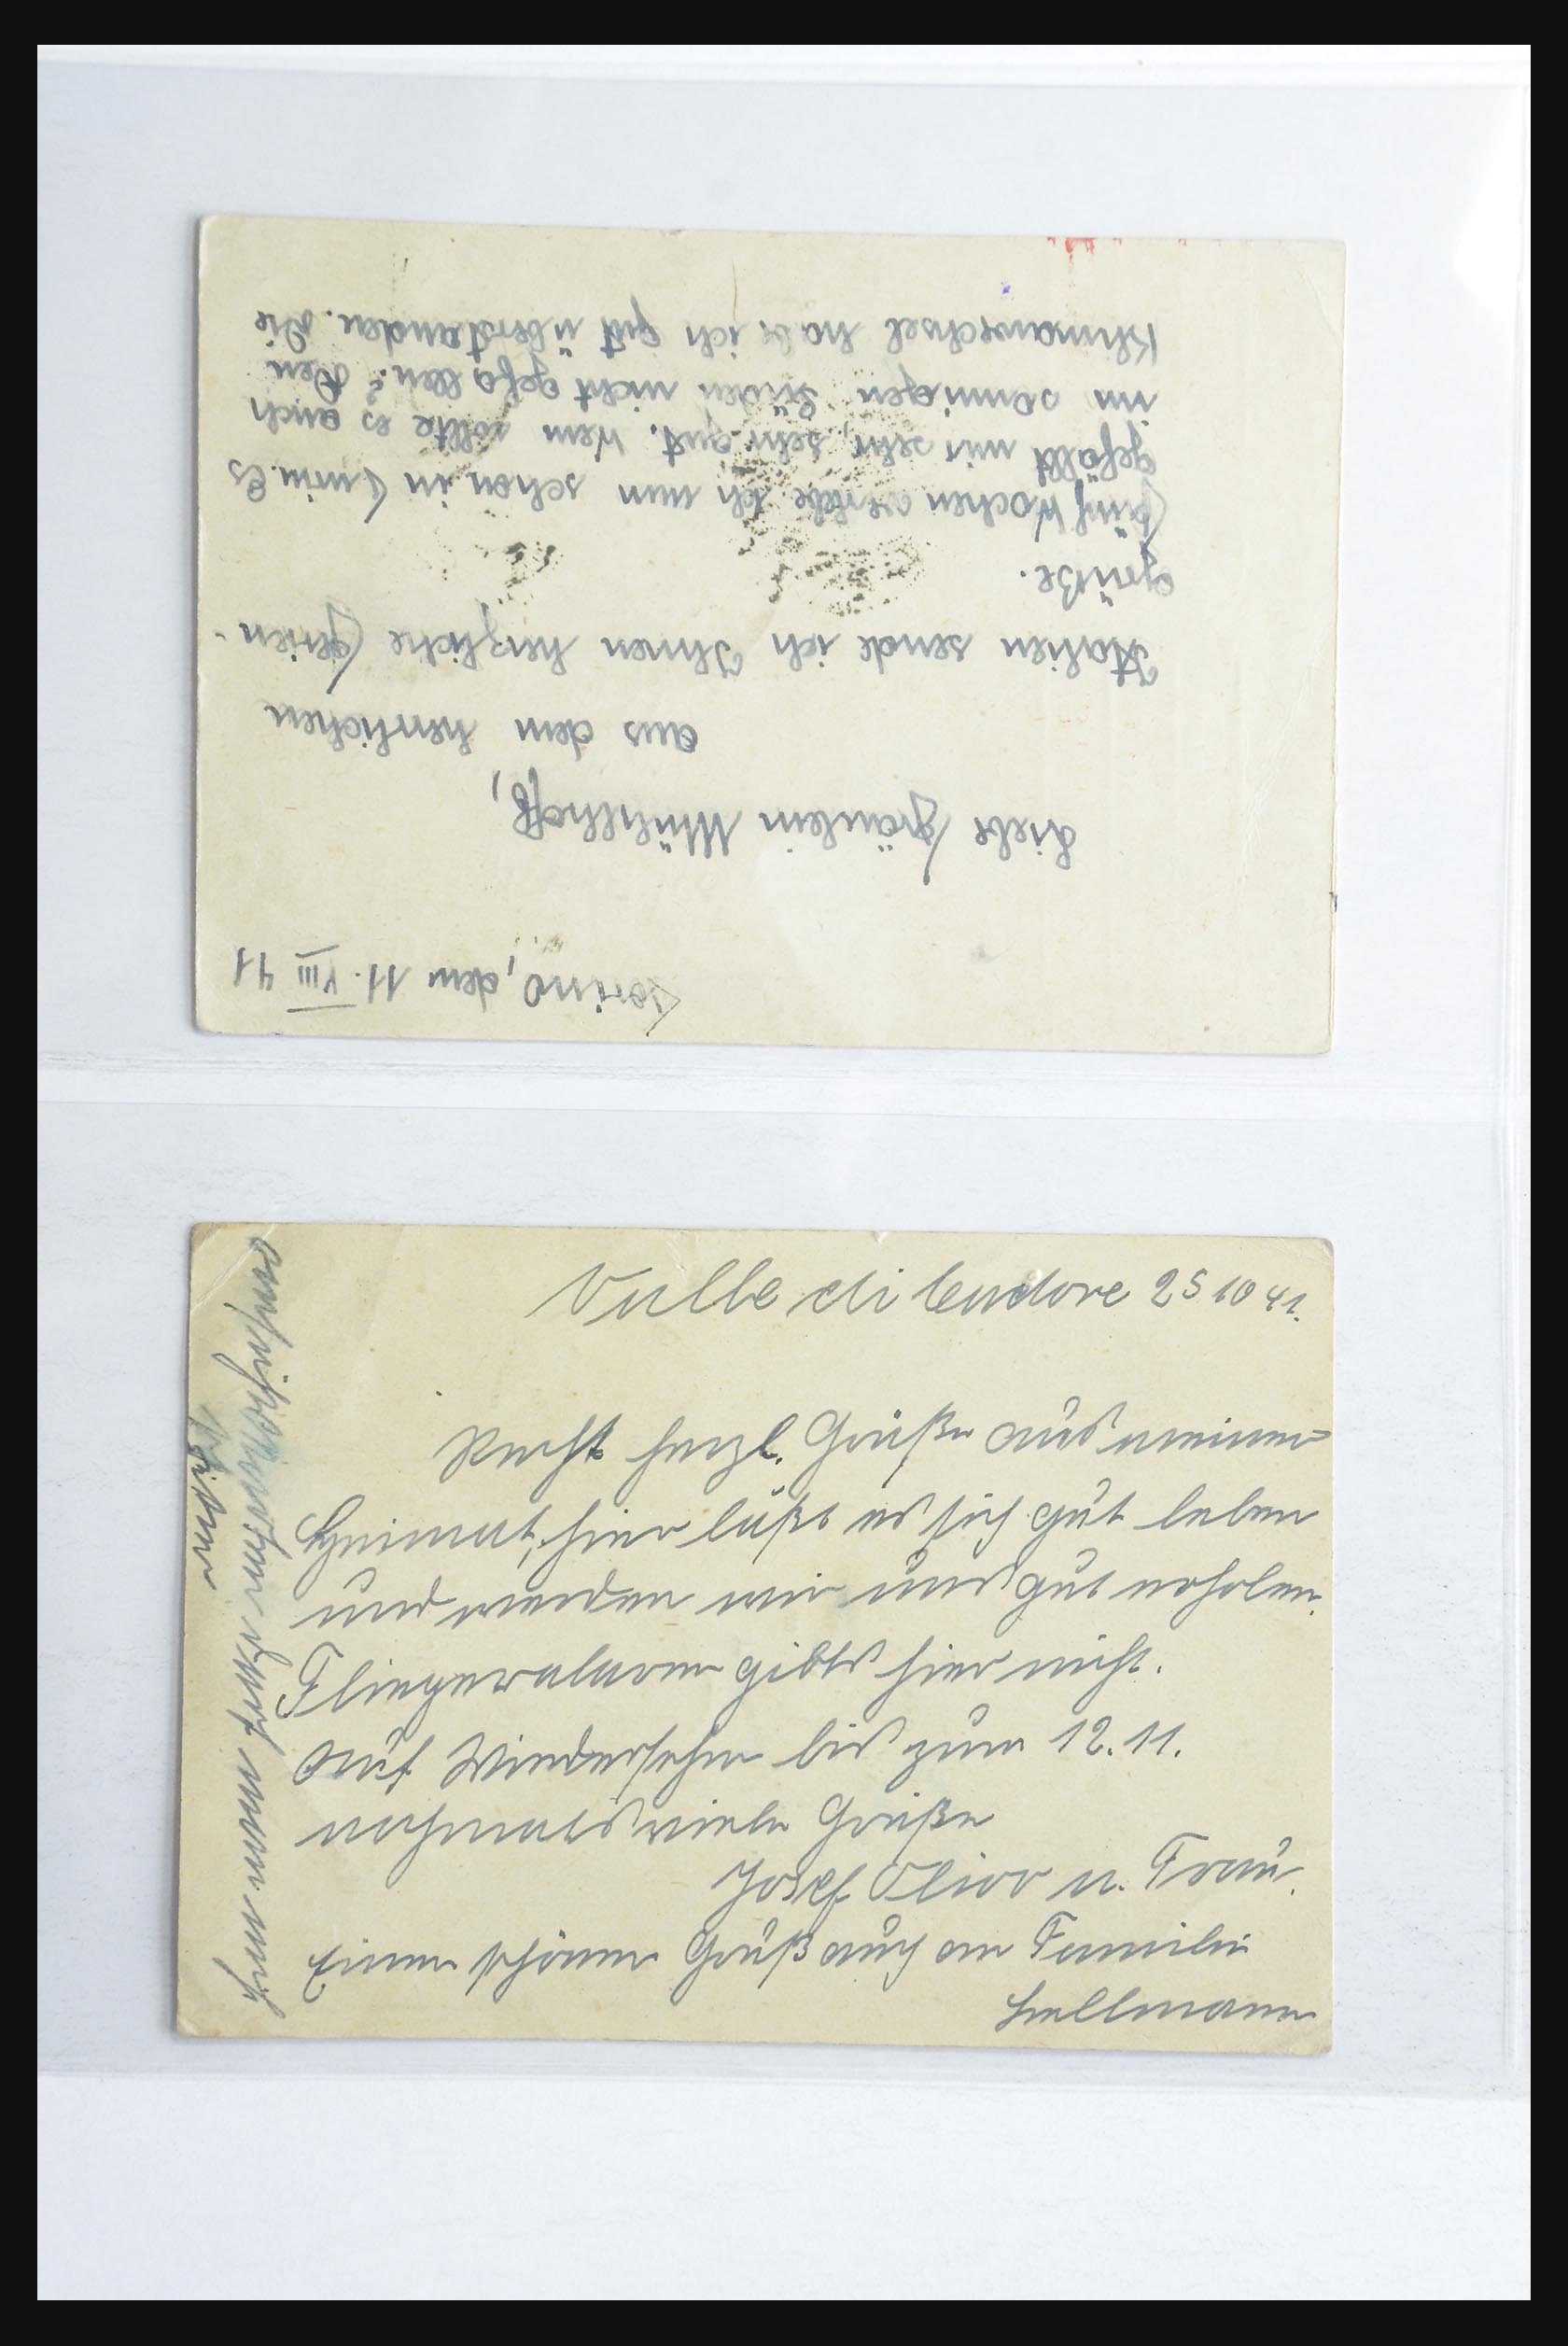 Torino, den 11. VIII 41
Liebe Fräulein Mühlhoff,
aus dem herrlichen
Italien sende ich Ihnen herzliche Ferien-
grüße.
Fünf Wochen verlebe ich nun schon in Turin. Es
gefällt mir sehr, sehr gut. Wem sollte es auch
im sonnigen Süden nicht gefallen? Den
Klimawechsel habe ich gut überstanden. Die
Valle di Cadore 25 10 41.
Recht herzl. Grüße aus meiner
Heimat, hier läßt es sich gut leben
und werden wir uns gut erholen.
Fliegeralarm gibts hier nicht.
Auf Wiedersehn bis zum 12.11.
nochmals viele Grüße
Josef Olivo u. Frau.
Einen schönen Gruß auch an Familie